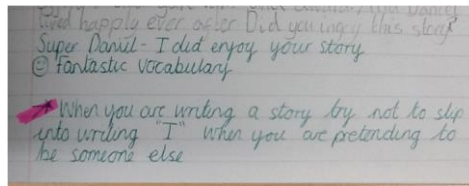 lived happily ever after Did you injoy this story
Super Daniil - I did enjoy your story
☺ Fantastic vocabulary
When you are writing a story try not to slip
into writing "I" when you are pretending to
be someone else